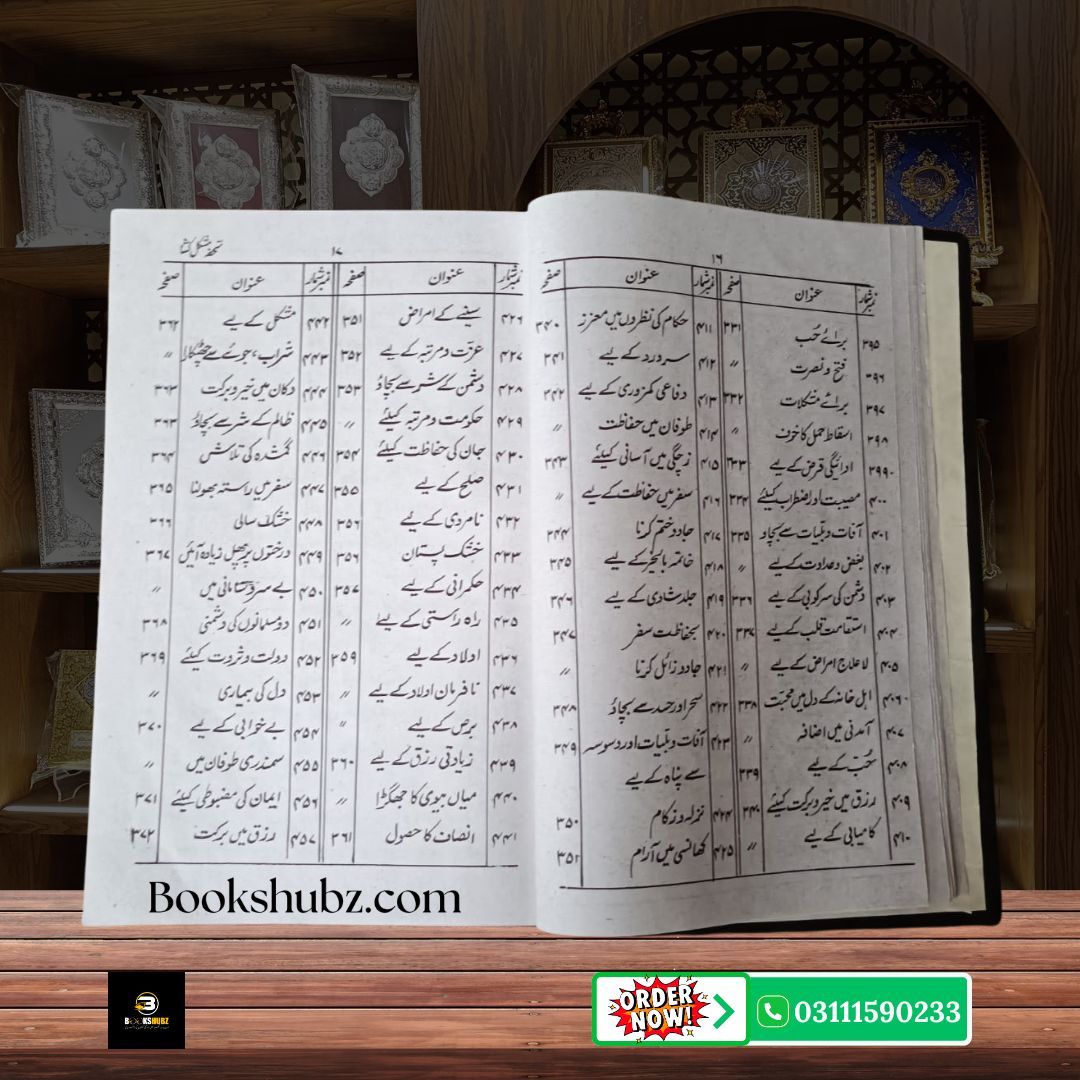 ۱۶
نمبرشمار عنوان صفحہ نمبرشمار عنوان صفحہ
۳۹۵ برائے حُب ۳۳۱
۳۹۶ فتح و نصرت 〃
۳۹۷ برائے مشکلات ۳۳۲
۳۹۸ اسقاط حمل کا خوف 〃
۳۹۹ ادائیگی قرض کے لیے ۳۳۳
۴۰۰ مصیبت اور اضطراب کیلئے ۳۳۴
۴۰۱ آفات و بلیات سے بچاو ۳۳۵
۴۰۲ بغض و عداوت کے لیے 〃
۴۰۳ دشمن کی سرکوبی کے لیے ۳۳۶
۴۰۴ استقامت قلب کے لیے ۳۳۷
۴۰۵ لاعلاج امراض کے لیے 〃
۴۰۶ اہل خانہ کے دل میں محبت ۳۳۸
۴۰۷ آمدنی میں اضافہ 〃
۴۰۸ حُب کے لیے ۳۳۹
۴۰۹ رزق میں خیر و برکت کیلئے ۳۴۰
۴۱۰ کامیابی کے لیے 〃
۴۱۱ حکام کی نظروں میں معزز ۳۴۰
۴۱۲ سر درد کے لیے ۳۴۱
۴۱۳ دفاعی کمزوری کے لیے ۳۴۲
۴۱۴ طوفان میں حفاظت 〃
۴۱۵ زچگی میں آسانی کیلئے ۳۴۳
۴۱۶ سفر میں حفاظت کے لیے 〃
۴۱۷ جادو ختم کرنا ۳۴۴
۴۱۸ خاتمہ بالخیر کے لیے ۳۴۵
۴۱۹ جلد شادی کے لیے ۳۴۶
۴۲۰ بحفاظت سفر ۳۴۷
۴۲۱ جادو زائل کرنا 〃
۴۲۲ سحر اور حسد سے بچاؤ ۳۴۸
۴۲۳ آفات و بلیات اور وسوسہ ۳۴۹
سے پناہ کے لیے
۴۲۴ نزلہ و زکام ۳۵۰
۴۲۵ کھانسی میں آرام ۳۵۱
تحفہ مشکل کشا
۱۷
نمبرشمار عنوان صفحہ نمبرشمار عنوان صفحہ
۴۲۶ سینے کے امراض ۳۵۱
۴۲۷ عزت و مرتبہ کے لیے ۳۵۲
۴۲۸ دشمن کے شر سے بچاؤ ۳۵۳
۴۲۹ حکومت و مرتبہ کیلئے 〃
۴۳۰ جان کی حفاظت کیلئے ۳۵۴
۴۳۱ صلح کے لیے ۳۵۵
۴۳۲ نامردی کے لیے ۳۵۶
۴۳۳ خشک پستان ۳۵۶
۴۳۴ حکمرانی کے لیے ۳۵۷
۴۳۵ راہ راستی کے لیے 〃
۴۳۶ اولاد کے لیے ۳۵۹
۴۳۷ نافرمان اولاد کے لیے 〃
۴۳۸ برص کے لیے 〃
۴۳۹ زیادتی رزق کے لیے ۳۶۰
۴۴۰ میاں بیوی کا جھگڑا 〃
۴۴۱ انصاف کا حصول ۳۶۱
۴۴۲ مشکل کے لیے ۳۶۲
۴۴۳ شراب، جوئے سے چھٹکارا 〃
۴۴۴ دکان میں خیر و برکت ۳۶۳
۴۴۵ ظالم کے شر سے بچاؤ ۳۶۳
۴۴۶ گمشدہ کی تلاش ۳۶۴
۴۴۷ سفر میں راستہ بھولنا ۳۶۵
۴۴۸ خشک سالی ۳۶۶
۴۴۹ درختوں پر پھل زیادہ آئیں ۳۶۷
۴۵۰ بے سر و سامانی میں 〃
۴۵۱ دو مسلمانوں کی دشمنی ۳۶۸
۴۵۲ دولت و ثروت کیلئے ۳۶۹
۴۵۳ دل کی بیماری 〃
۴۵۴ بے خوابی کے لیے ۳۷۰
۴۵۵ سمندری طوفان میں 〃
۴۵۶ ایمان کی مضبوطی کیلئے ۳۷۱
۴۵۷ رزق میں برکت ۳۷۲
Bookshubz.com
BOOKSHUBZ
ORDER
NOW!
03111590233